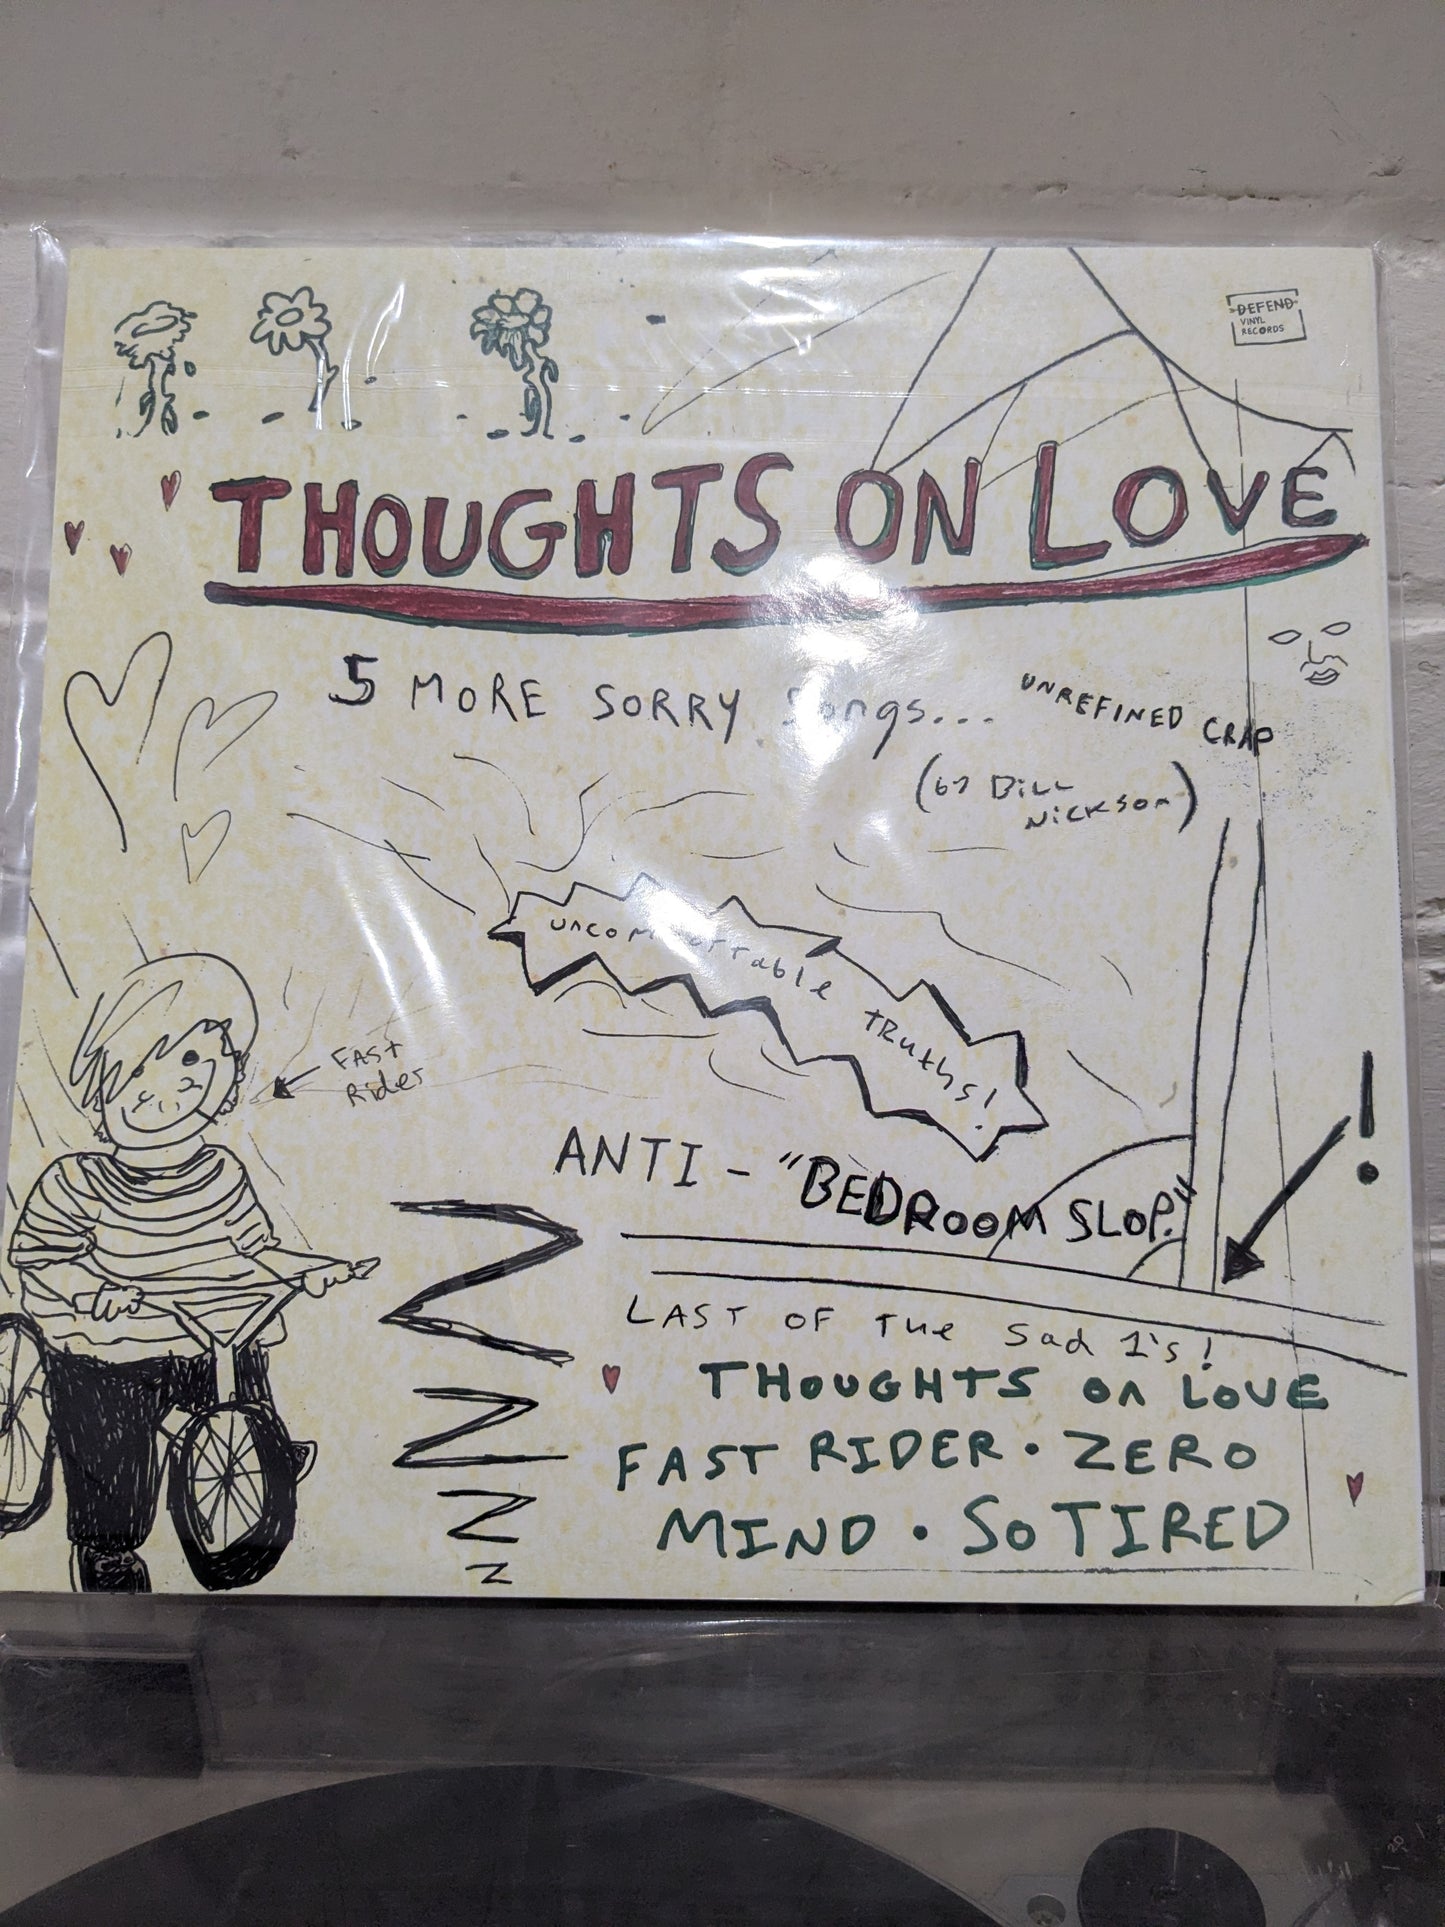 DEFEND
VINYL
RECORDS
THOUGHTS ON LOVE
5 MORE SORRY Songs...
UNREFINED CRAP
(by Bill
Nickson)
uncomfortable truths!
FAST
Rider
ANTI - "BEDROOM SLOP."
!
LAST OF THE Sad 1's!
THOUGHTS On LOVE
FAST RIDER • ZERO
MIND • SO TIRED